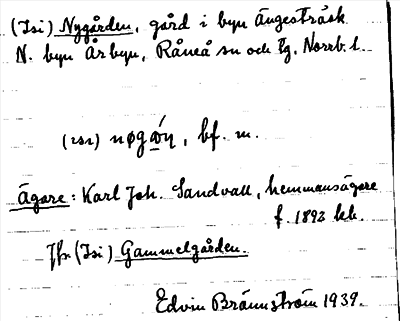 (Isi) Nygården, gård i byn Ängesträsk
N. byn Årbyn, Råneå sn och tg, Norrb. l.
(ısı) nøgǫ́n, bf. m.
Ägare: Karl Joh. Sandvall, hemmansägare
f. 1892 hb.
Jfr (Isi) Gammelgården.
Edvin Brännström 1939.